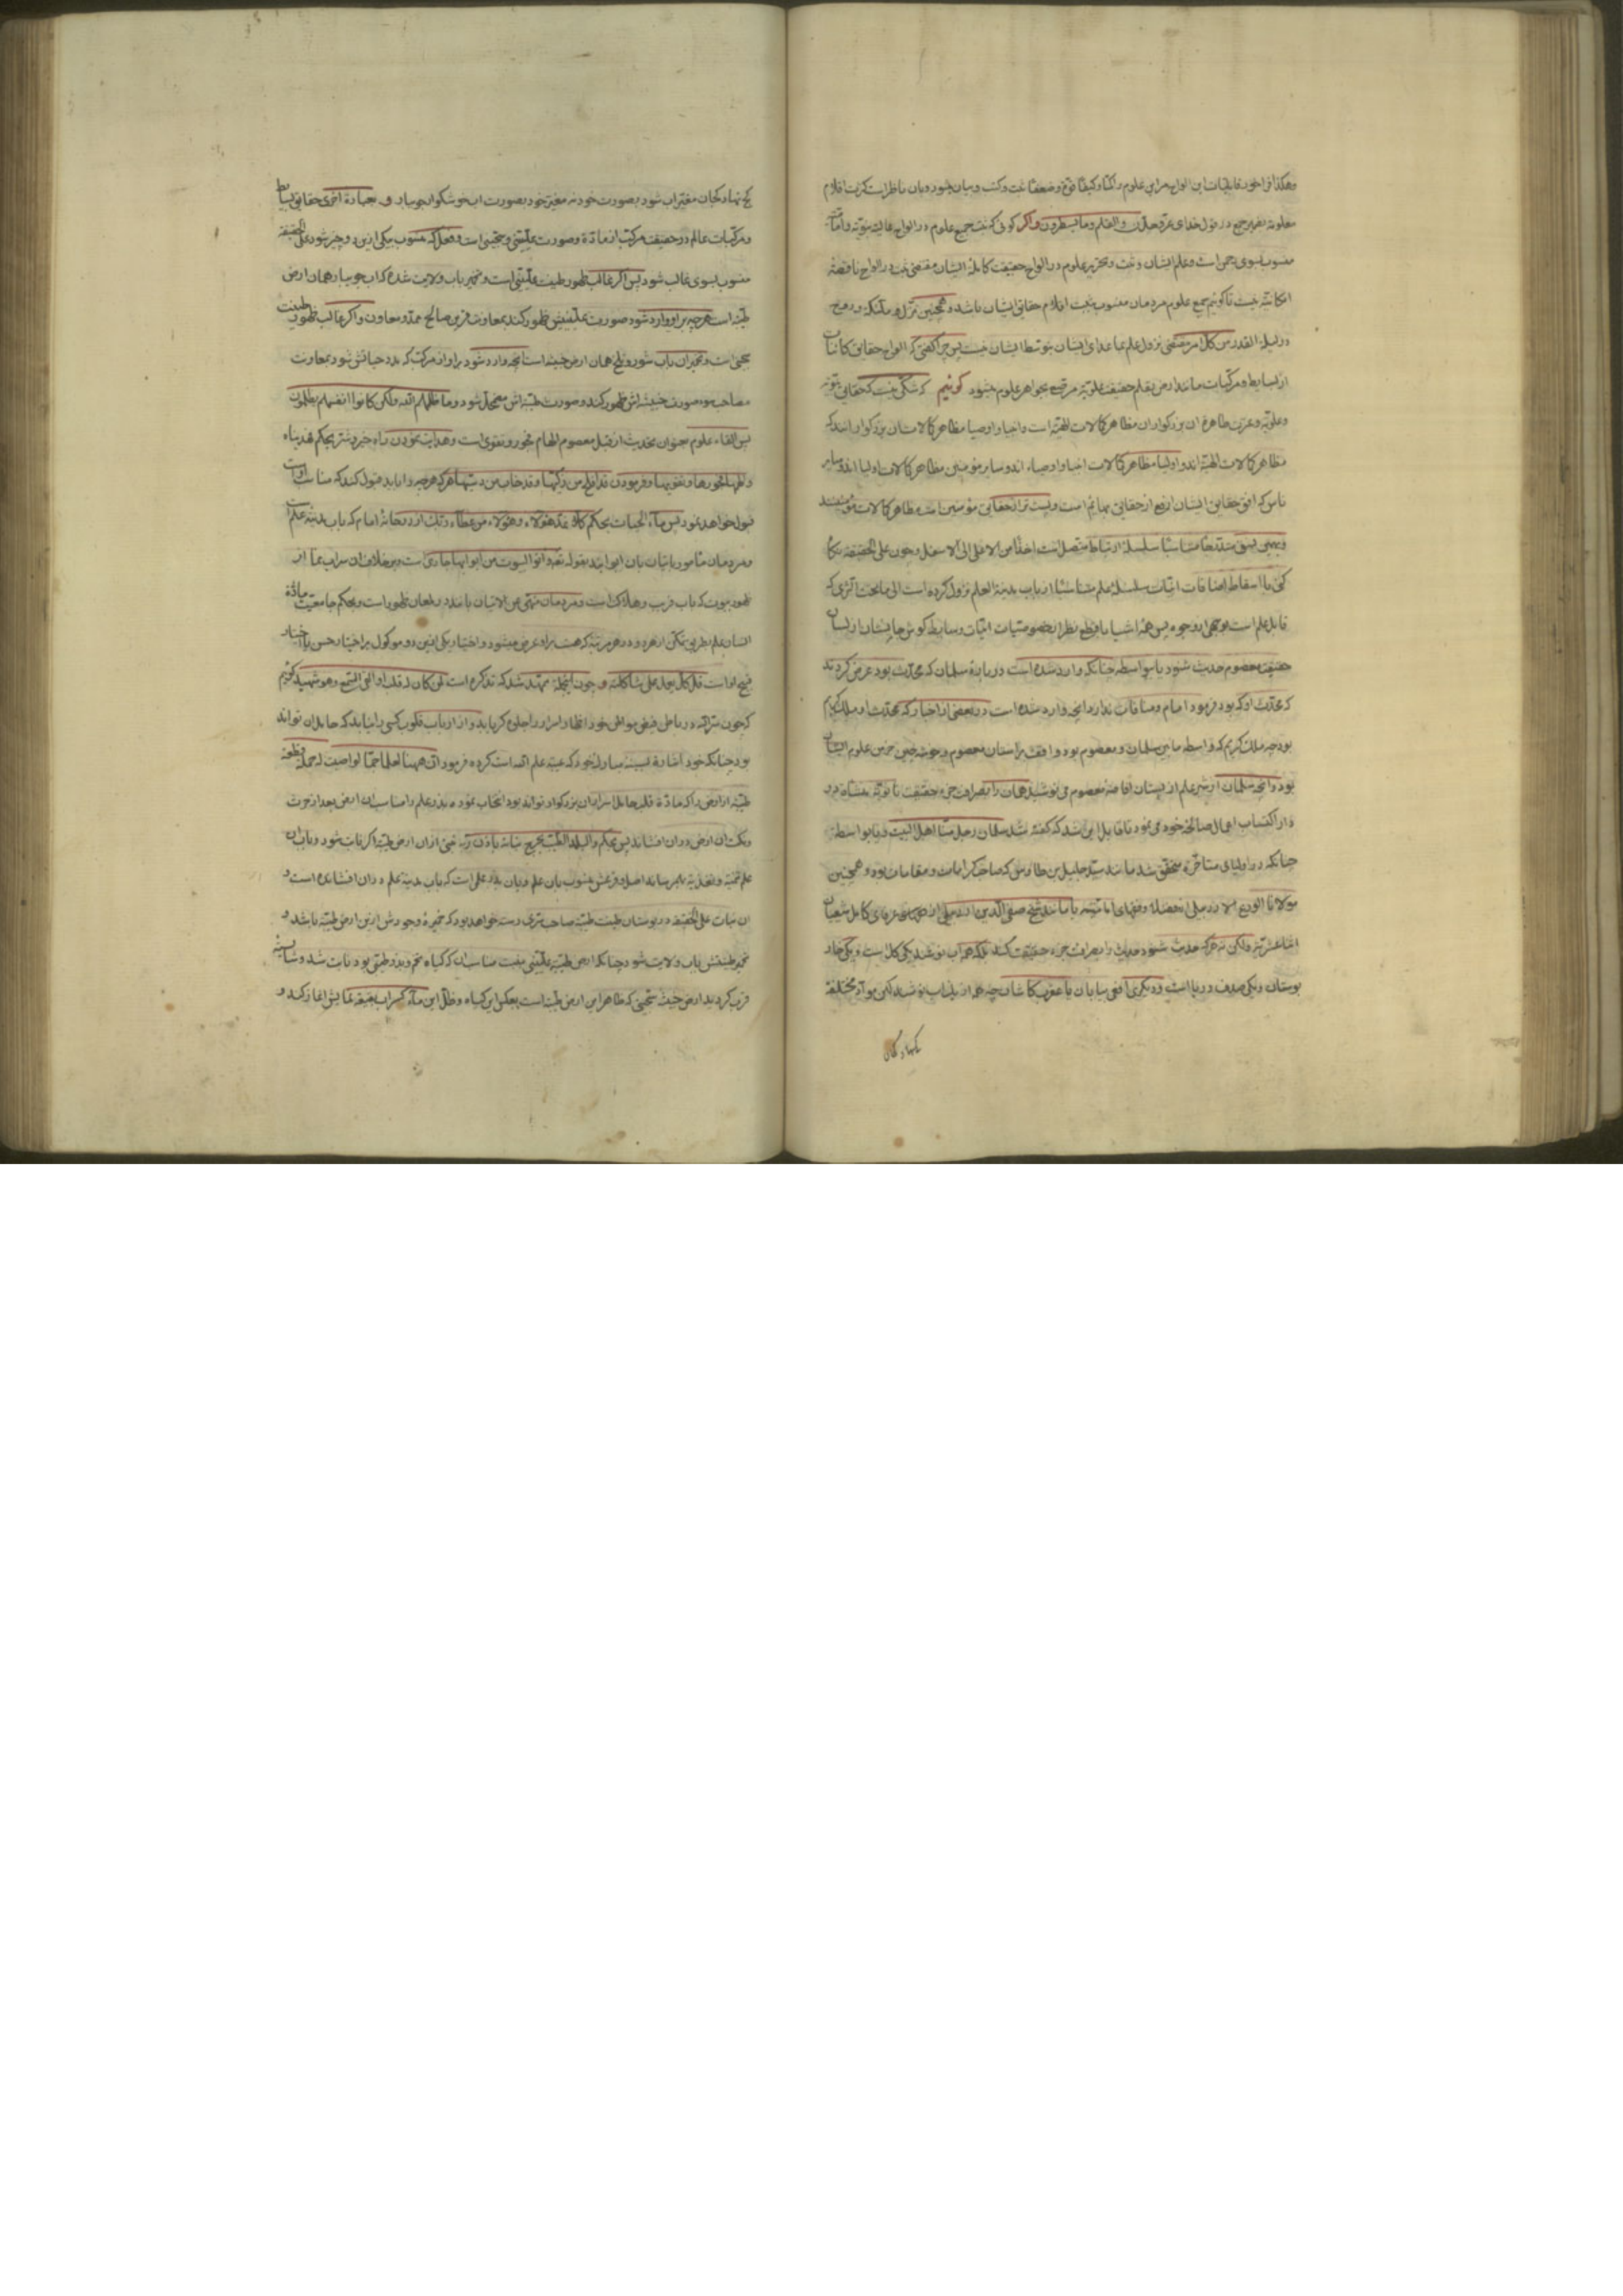 وهکذا فراخور قابلیات این الواح مر این علوم را کمّا وکیفا قوة وضعفا ثبت وکتب وبیان میشود وبان ناظر است کثرت اقلام
معلومة بضمیر جمع در قول خدای عز وجل ن والقلم وما یسطرون واکر کوئی که ثبت جمیع علوم در الواح عالیه نبویه وامامیه
منسوب بسوی حق است وعلم ایشان وثبت وتحریر علوم در الواح حقیقت کاملة ایشان مقتضی ثبت در الواح ناقصة
امکانیه نیست تا کوئیم جمیع علوم مردمان منسوب بثبت اقلام حقایق ایشان باشد وهمچنین تنزل ملائکه وروح
در لیلة القدر من کل امر مقتضی نزول علم بما عدای ایشان بتوسط ایشان نیست پس چرا کفتی که الواح حقایق کائنات
از بسایط ومرکبات مانند ارض بقلم حقیقت علویه مرقع بجواهر علوم میشود کوئیم که شکی نیست که حقایق نبویه
وعلویه وعترت طاهرة ان بزرکواران مظاهر کمالات الهیه است وانبیا واوصیا مظاهر کمالات ان بزرکوارانند که
مظاهر کمالات الهیه اند واولیا مظاهر کمالات انبیا واوصیاء اند وسایر مؤمنین مظاهر کمالات اولیا اند وسایر
ناس که افق حقایق ایشان ارفع از حقایق بهایم است وپست تر از حقایق مؤمنین است مظاهر کمالات مؤمنینند
وبهمین نسق متنازلا متناسبا سلسلة ارتباط متصل است اخذا من الاعلی الی الاسفل وچون علی الحقیقه نکاه
کنی با اسقاط اضافات انیات سلسلة علم متناسبا از باب مدینة العلم نزول کرده است الی ما تحت الثری که
قابل علم است بوجهی از وجوه پس همه اشیا با قطع نظر از خصوصیات انیات وسایط کوش جانشان از لسان
حقیقت معصوم حدیث شنود یا بواسطه چنانکه وارد شده است در بارة سلمان که محدث بود عرض کردند
که محدث او که بود فرمود امام ومنافات ندارد انچه وارد شده است در بعضی از اخبار که محدث او ملک کریم
بود چه ملک کریم که واسطه ما بین سلمان ومعصوم بود واقف بر استان معصوم وخوشه چین خرمن علوم ایشان
بود وانچه سلمان از شیر علم از پستان افاضة معصوم می نوشید همان را بصرافت جزء حقیقت ثانویه بنشاة در
دار اکتساب اعمال صالحة خود می نمود تا قابل این شد که کفته شد سلمان رجل منا اهل البیت ویا بواسطة
چنانکه در اولیای متاخره متحقق شد مانند سید جلیل بن طاوس که صاحب کرامات ومقامات بود وهمچنین
مولانا الورع الاردبیلی از فضلا وفقهای امامیه یا مانند شیخ صفی الدین اردبیلی از عرفای کامل شیعیان
اثنا عشریه ولکن نه هر که حدیث شنود حدیث را بصرافت جزء حقیقت کند بلکه هر اب نوشد یکی کل است ویکی خار
بوستان ویکی صدف دریا است ودیکری افعی بیابان یا عقرب کاشان چه هر از یک اب نوشند لکن مواد مختلفة
کج نهاد کجان مغیر اب شود بصورت خود نه مغیر خود بصورت اب خوشکوار جویبار وبعبارة اخری حقایق بسایط
ومرکبات عالم در حقیقت مرکب از مادة وصورت علیینی وسجینی است وفعل که منسوب بیکی از این دو چیز شود علی الحقیقه
منسوب بسوی غالب شود پس اکر غالب ظهور طینت علیینی است وتخمیر باب ولایت شده که اب جویبار همان ارض
طیبه است هرچه بر او وارد شود صورت علیینیش ظهور کند بمعاونت قرین صالح ممد ومعاون واکر غالب ظهور طینت
سجینی است وتخمیر ان باب شور وتلخ همان ارض خبیثه است انچه وارد شود بر او از مرکب که مدد حیاتش شود بمعاونت
مصاحب سوء صورت خبیثه اش ظهور کند وصورت طیبه اش مضمحل شود وما ظلمهم الله ولکن کانوا انفسهم یظلمون
پس القاء علوم بعنوان تحدیث از قبل معصوم الهام فجور وتقوی است وهدایت نمودن راه خیر وشر بحکم هدیناه
والهمها فجورها وتقویها وفرمودن قد افلح من زکیها وقد خاب من دسیها هر که هرچه را باید قبول کند که مناسب اوست
قبول خواهد نمود پس ماء الحیات بحکم کلا نمد هؤلاء وهؤلاء من عطاء ربک از رودخانة امام که باب مدینة علم است
ومردمان مامور باتیان بان ابوابند بقوله تعالی واتوا البیوت من ابوابها جاری است وبر خلاف ان سراب نما از
ظهر بیوت که باب قریب وهلاک است ومردمان منهی عن الاتیان بانند در لمعان ظهور است وبحکم جامعیت مادة
انسان علم بطریق تمکن از هر دو در هر مرتبة که هست بر او عرض میشود واختیار یکی از این دو موکول بر اختیار حسن یا اختیار
قبیح اوست قل کل یعمل علی شاکلته وچون اینجمله ممهد شد که تذکره است لمن کان له قلب او القی السمع وهو شهید کوئیم
که چون شاه در باطن فیض مواطن خود انظار اسرار را جلوه کر یابد واز ارباب قلوب کسی را نیابد که حامل ان تواند
بود چنانکه خود اشارة بسینة مبارک خود که عیبة علم الله است کرده فرمود ان ههنا لعلما جما لو اصبت له حملة قطعة
طیبه از ارض را که مادة قلب حامل اسرار ان بزرکوار تواند بود انتخاب نموده بذر علم را مناسب ان ارض بعد از حرث
ونکث ان ارض در ان افشاند پس بحکم والبلد الطیب یخرج نباته باذن ربه شیئی از ان ارض طیبه اکر نابت شود وباب ان
علم تنمیه وتغذیه بثمر رساند اصل وفرعش منسوب بان علم وبان بذر علی است که باب مدینة علم در ان افشانده است و
ان نبات علی الحقیقه در بوستان طینت طیبه صاحب ثمری دست خواهد بود که خمیرة وجودش از این ارض طیبه باشد و
تخمیر طینتش باب ولایت شود چنانکه ارض طیبه علیینی بنفت مناسب ان که کیاه تخم وبذر طیبی بود نابت شد وشایسته
قرب کردید ارض خبیث سجینی که ظاهر این ارض طیبه است بعکس این کیاه وظل این ماء کسراب بقیعة نمایش اغاز کند و